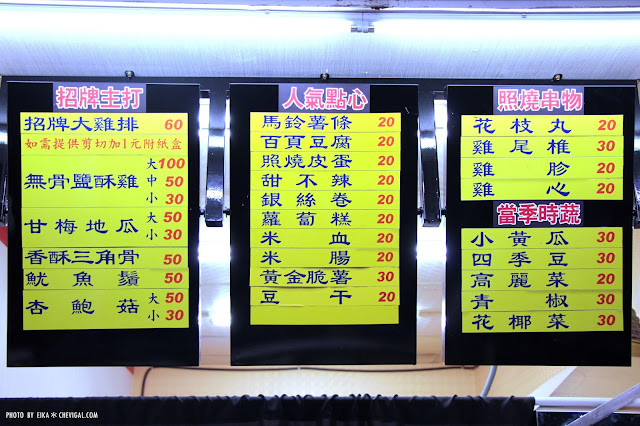 招牌主打
招牌大雞排 60
如需提供剪切加1元附紙盒
無骨鹽酥雞 大100
中 50
小 30
甘梅地瓜 大 50
小 30
香酥三角骨 50
魷魚鬚 50
杏鮑菇 大 50
小 30
人氣點心
馬鈴薯條 20
百頁豆腐 20
照燒皮蛋 20
甜不辣 20
銀絲卷 20
蘿蔔糕 20
米血 20
米腸 20
黃金脆薯 30
豆干 20
照燒串物
花枝丸 20
雞尾椎 30
雞胗 20
雞心 20
當季時蔬
小黃瓜 30
四季豆 30
高麗菜 20
青椒 30
花椰菜 30
PHOTO BY EIKA＊CHEVIGAL.COM